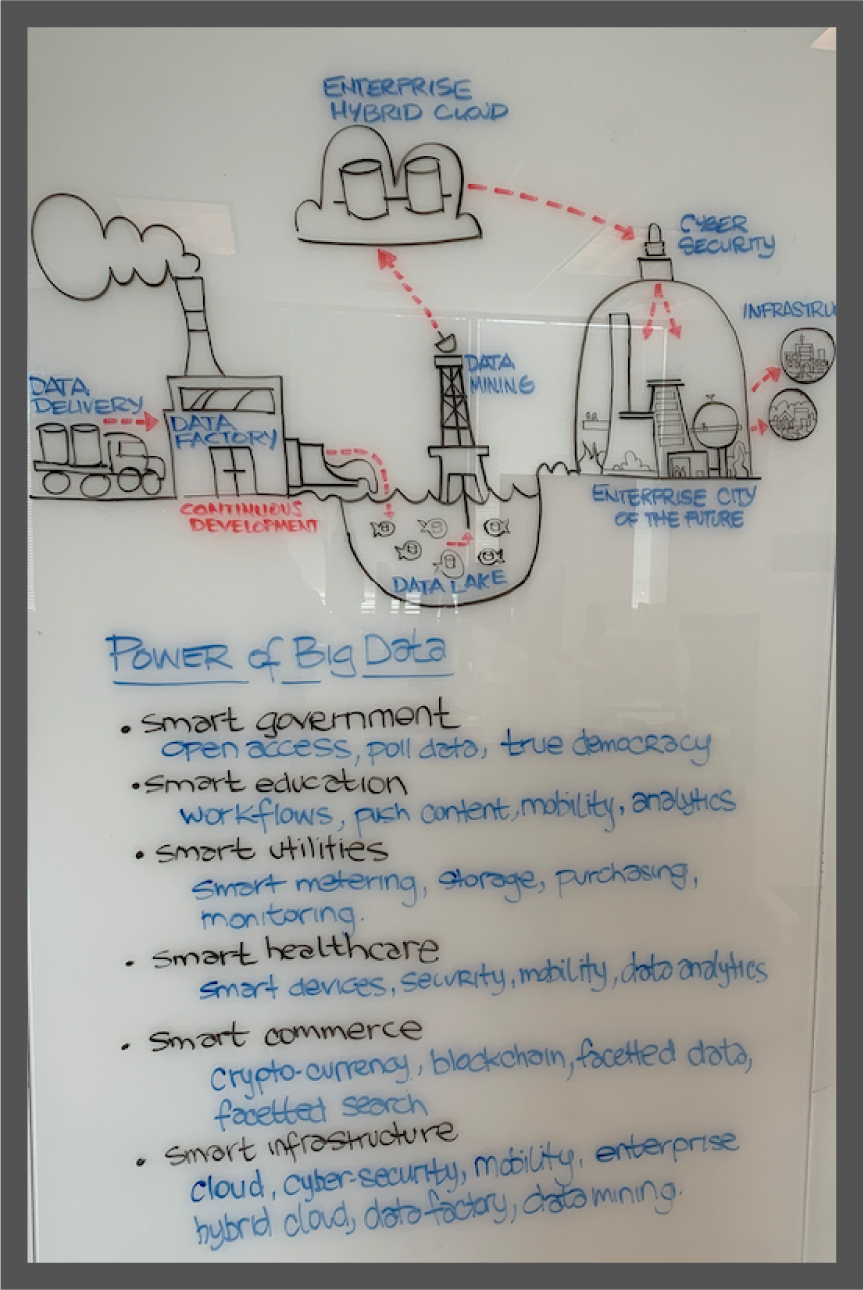 ENTERPRISE
HYBRID CLOUD
CYBER
SECURITY
INFRASTRU
DATA
DELIVERY
DATA
FACTORY
DATA
MINING
CONTINUOUS
DEVELOPMENT
ENTERPRISE CITY
OF THE FUTURE
DATA LAKE
POWER of Big Data
• smart government
open access, poll data, true democracy
• smart education
workflows, push content, mobility, analytics
• smart utilities
smart metering, storage, purchasing,
monitoring.
• smart healthcare
smart devices, security, mobility, data analytics
• smart commerce
crypto-currency, blockchain, facetted data,
facetted search
• smart infrastructure
cloud, cyber-security, mobility, enterprise
hybrid cloud, data factory, data mining.